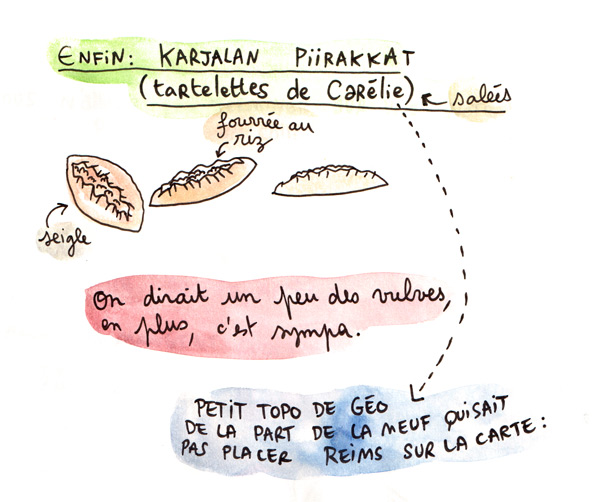 ENFiN: KARJALAN PiiRAKKAT
(tartelettes de Carélie)
salées
fourrée au
riz
seigle
On dirait un peu des vulves,
en plus, c'est sympa.
PETIT TOPO DE GÉO
DE LA PART DE LA MEUF QUiSAIT
PAS PLACER REIMS SUR LA CARTE: